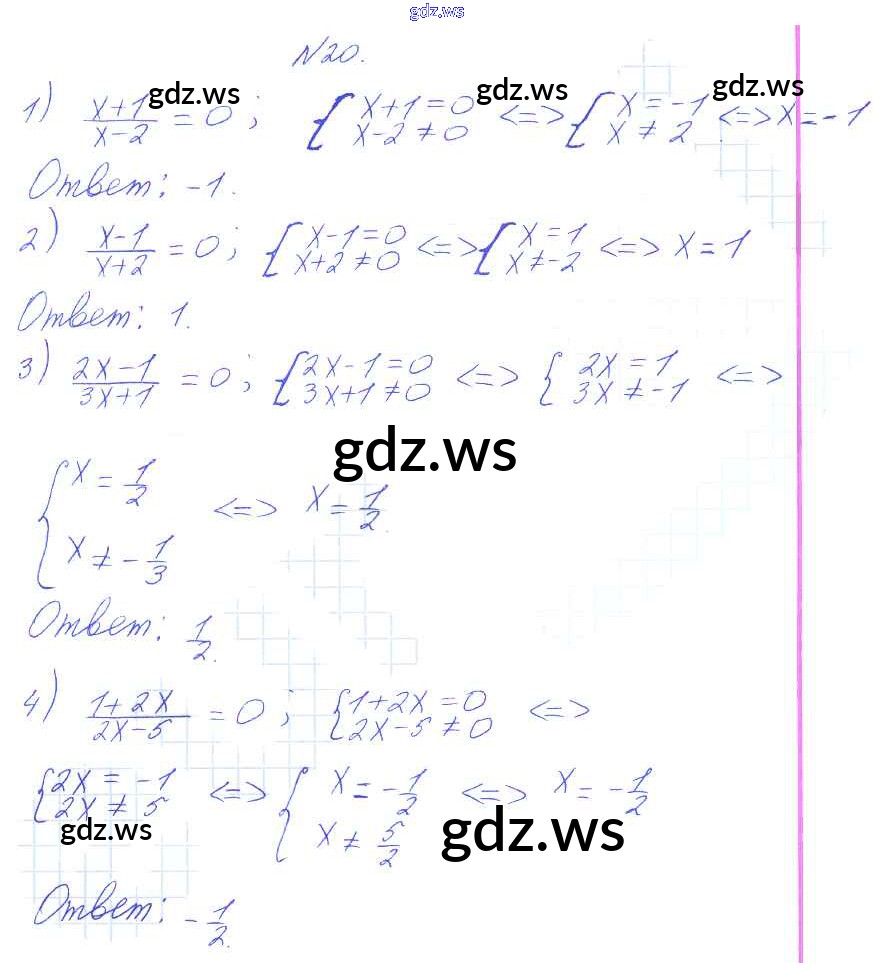 gdz.ws
N20.
1) (x+1)/(x-2) = 0; { x+1=0 x-2≠0 <=> { x=-1 x≠2 <=> x=-1
gdz.ws gdz.ws gdz.ws
Ответ: -1.
2) (x-1)/(x+2) = 0; { x-1=0 x+2≠0 <=> { x=1 x≠-2 <=> x=1
Ответ: 1.
3) (2x-1)/(3x+1) = 0; { 2x-1=0 3x+1≠0 <=> { 2x=1 3x≠-1 <=>
gdz.ws
{ x=1/2 x≠-1/3 <=> x=1/2.
Ответ: 1/2.
4) (1+2x)/(2x-5) = 0; { 1+2x=0 2x-5≠0 <=>
{ 2x=-1 2x≠5 <=> { x=-1/2 x≠5/2 <=> x=-1/2
gdz.ws gdz.ws
Ответ: -1/2.